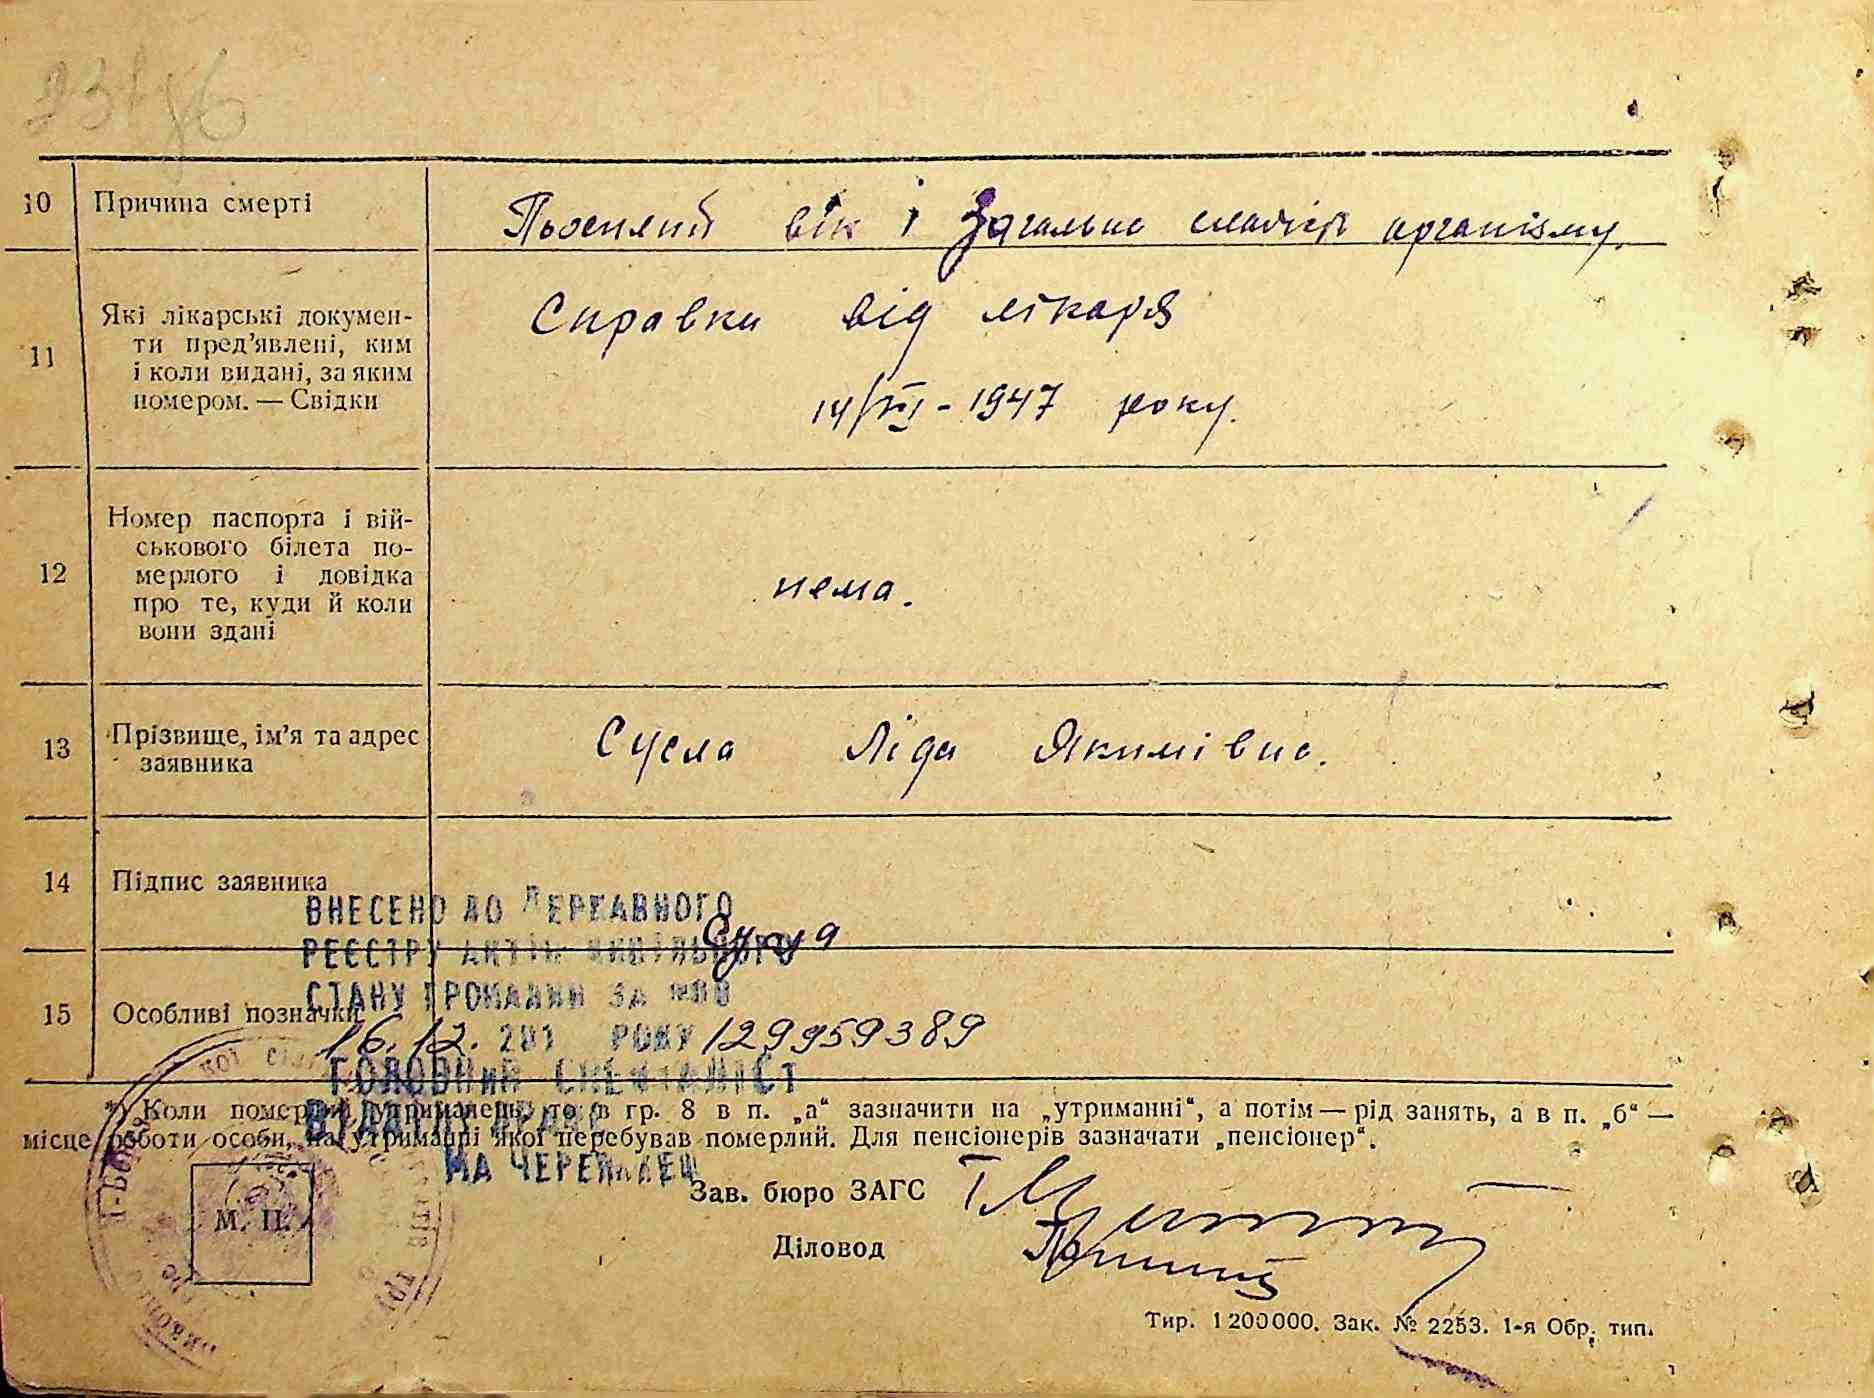 10 Причина смерті
вік і Загальна слабість організму.
11 Які лікарські докумен-
ти пред’явлені, ким
і коли видані, за яким
номером. — Свідки
Справка від лікаря
1947 року.
12 Номер паспорта і вій-
ськового білета по-
мерлого і довідка
про те, куди й коли
вони здані
нема.
13 Прізвище, ім’я та адрес
заявника
Сусла Ліда Якимівна.
14 Підпис заявника
ВНЕСЕНО ДО ДЕРЖАВНОГО
РЕЄСТРУ АКТІВ ЦИВІЛЬНОГО
СТАНУ ГРОМАДЯН ЗА №
15 Особливі позначки
16.12. 201 РОКУ 129959389
ГОЛОВНИЙ СПЕЦІАЛІСТ
*) Коли померлий утриманець, то в гр. 8 в п. „а“ зазначити на „утриманні“, а потім — рід занять, а в п. „б“ —
місце роботи особи, на утриманні якої перебував померлий. Для пенсіонерів зазначати „пенсіонер“.
М. П.
Зав. бюро ЗАГС
Діловод
Тир. 1200000. Зак. № 2253. 1-я Обр. тип.